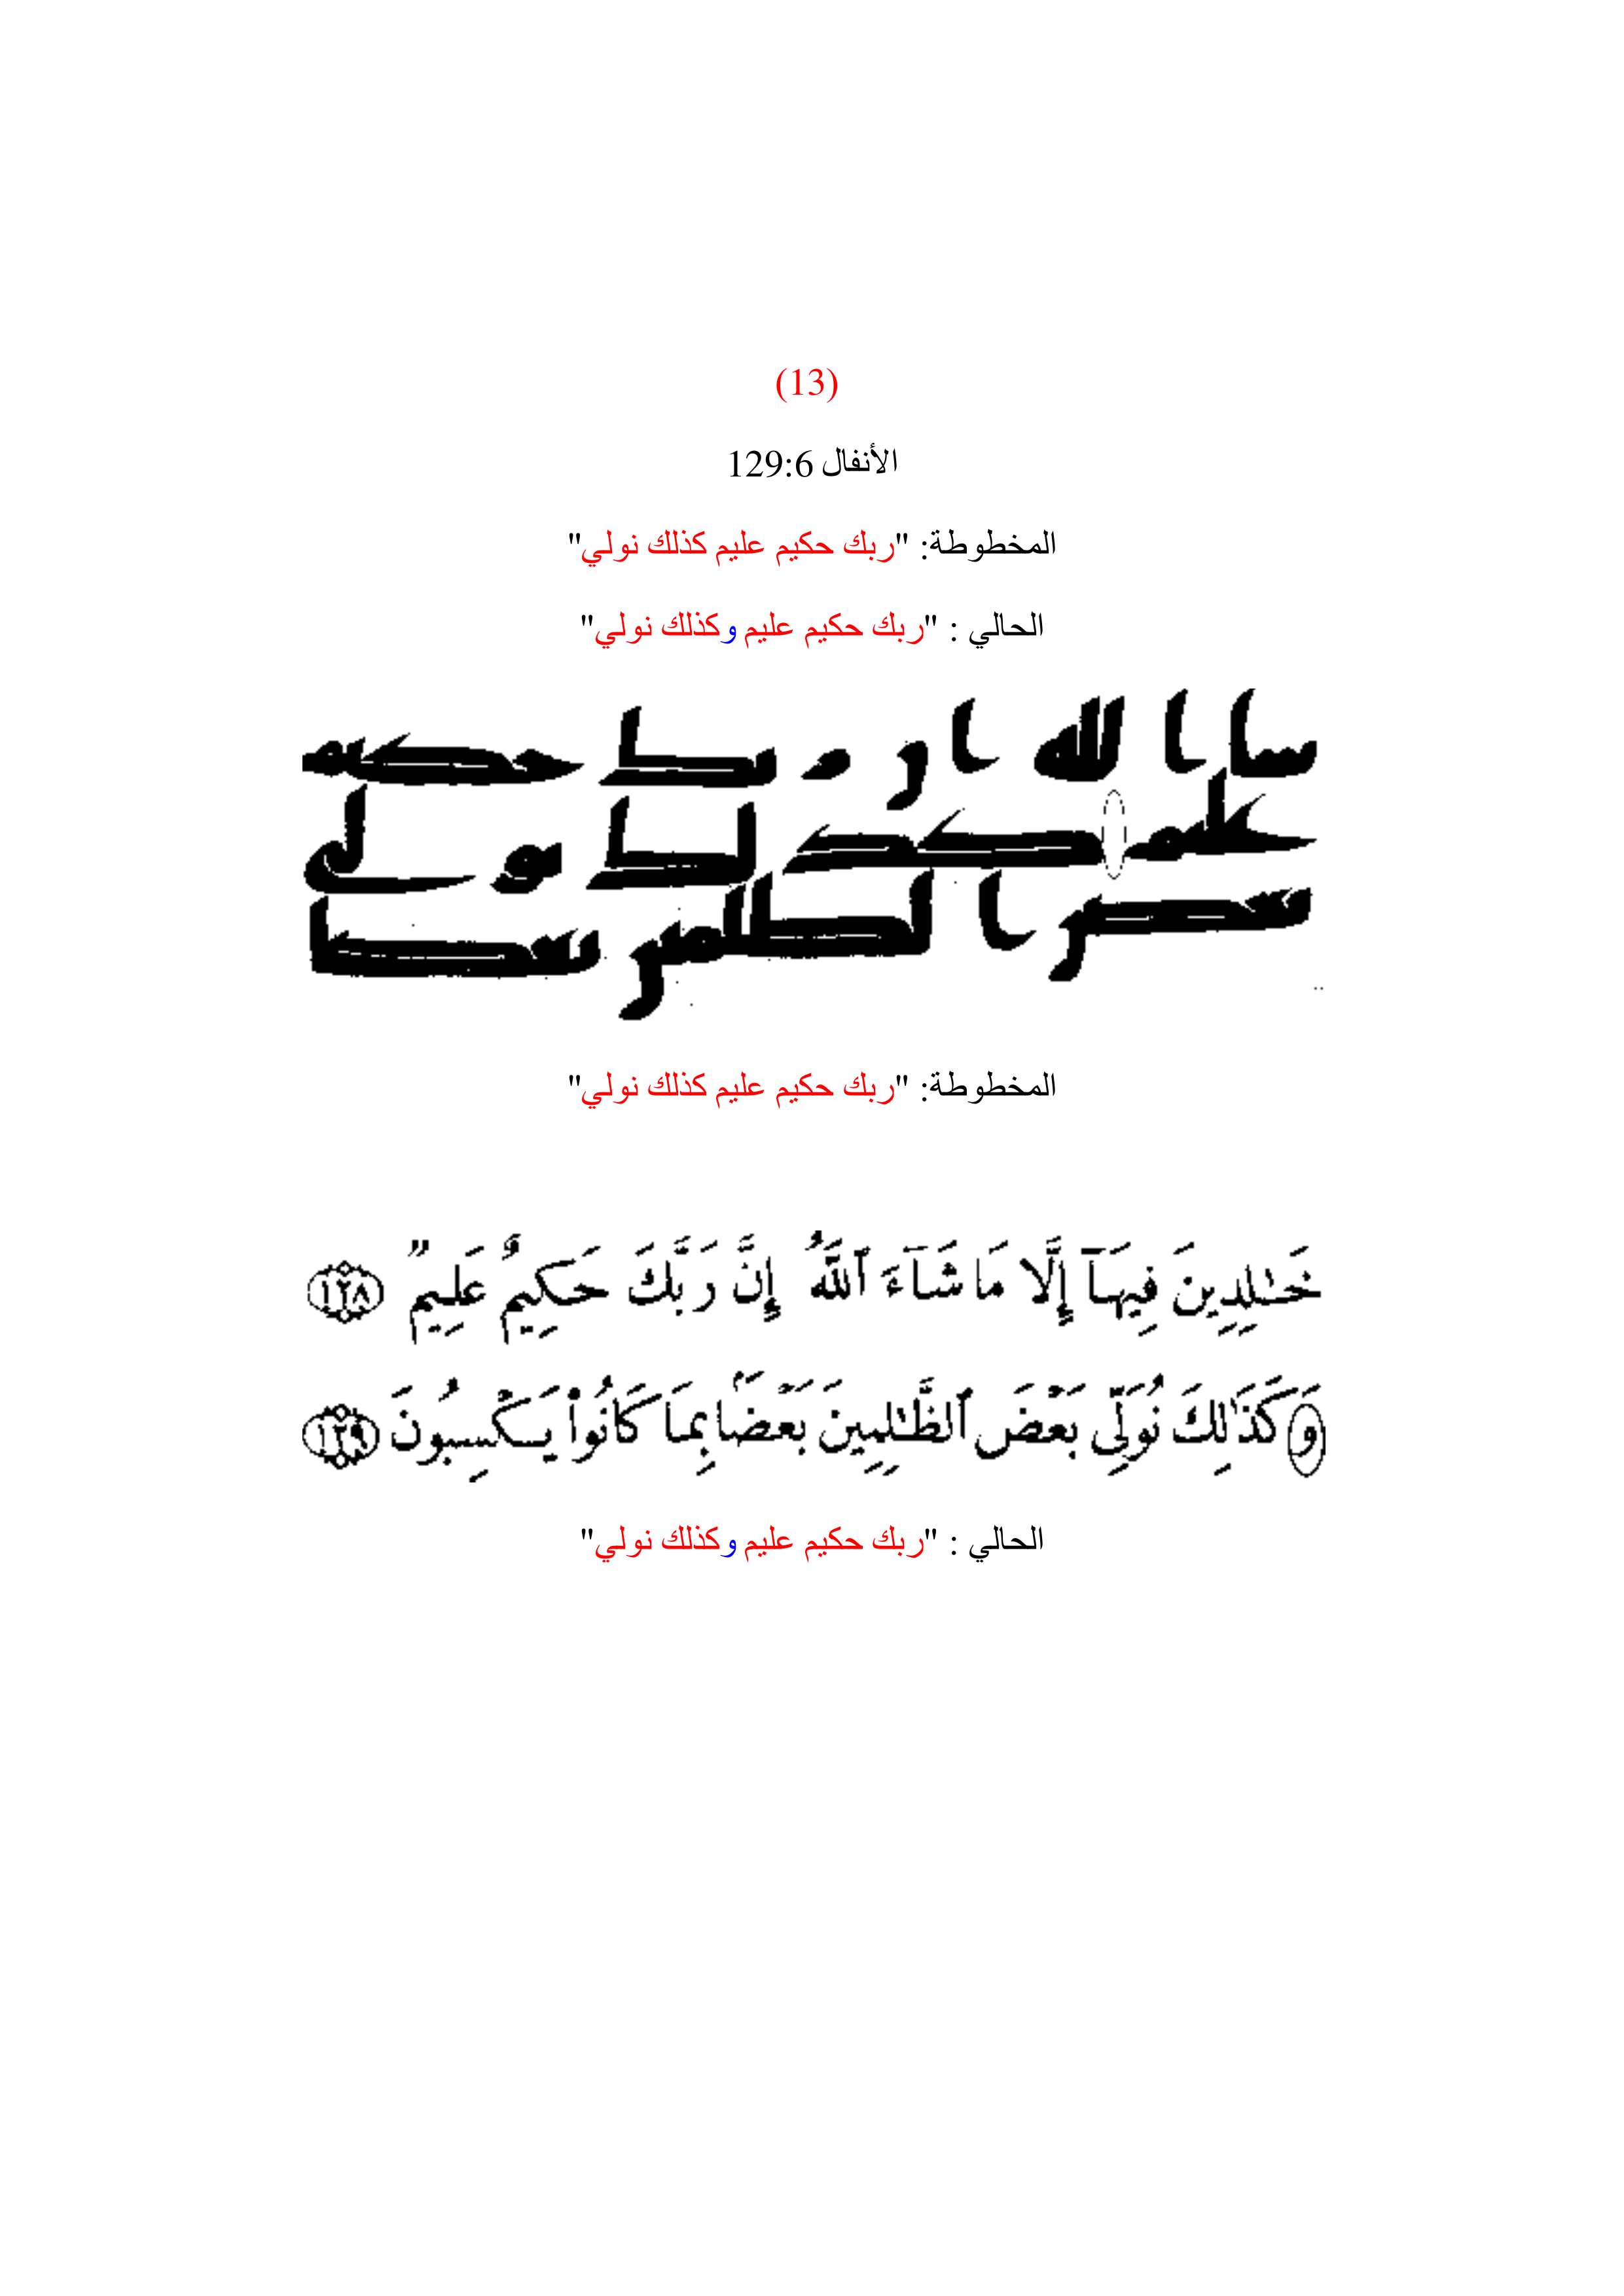 (13)
الأنفال 129:6
المخطوطة: "ربك حكيم عليم كذلك نولي"
الحالي : "ربك حكيم عليم وكذلك نولي"
سا ا لله ا ر ربك حكىم
علىم كدلك ىولى
ىعص ا لطلمىں ىعصا
المخطوطة: "ربك حكيم عليم كذلك نولي"
خَـٰلِدِينَ فِيهَآ إِلَّا مَا شَآءَ ٱللَّهُ إِنَّ رَبَّكَ حَكِيمٌ عَلِيمٌ ١٢٨
وَكَذَٰلِكَ نُوَلِّى بَعْضَ ٱلظَّـٰلِمِينَ بَعْضًۢا بِمَا كَانُوا۟ يَكْسِبُونَ ١٢٩
الحالي : "ربك حكيم عليم وكذلك نولي"